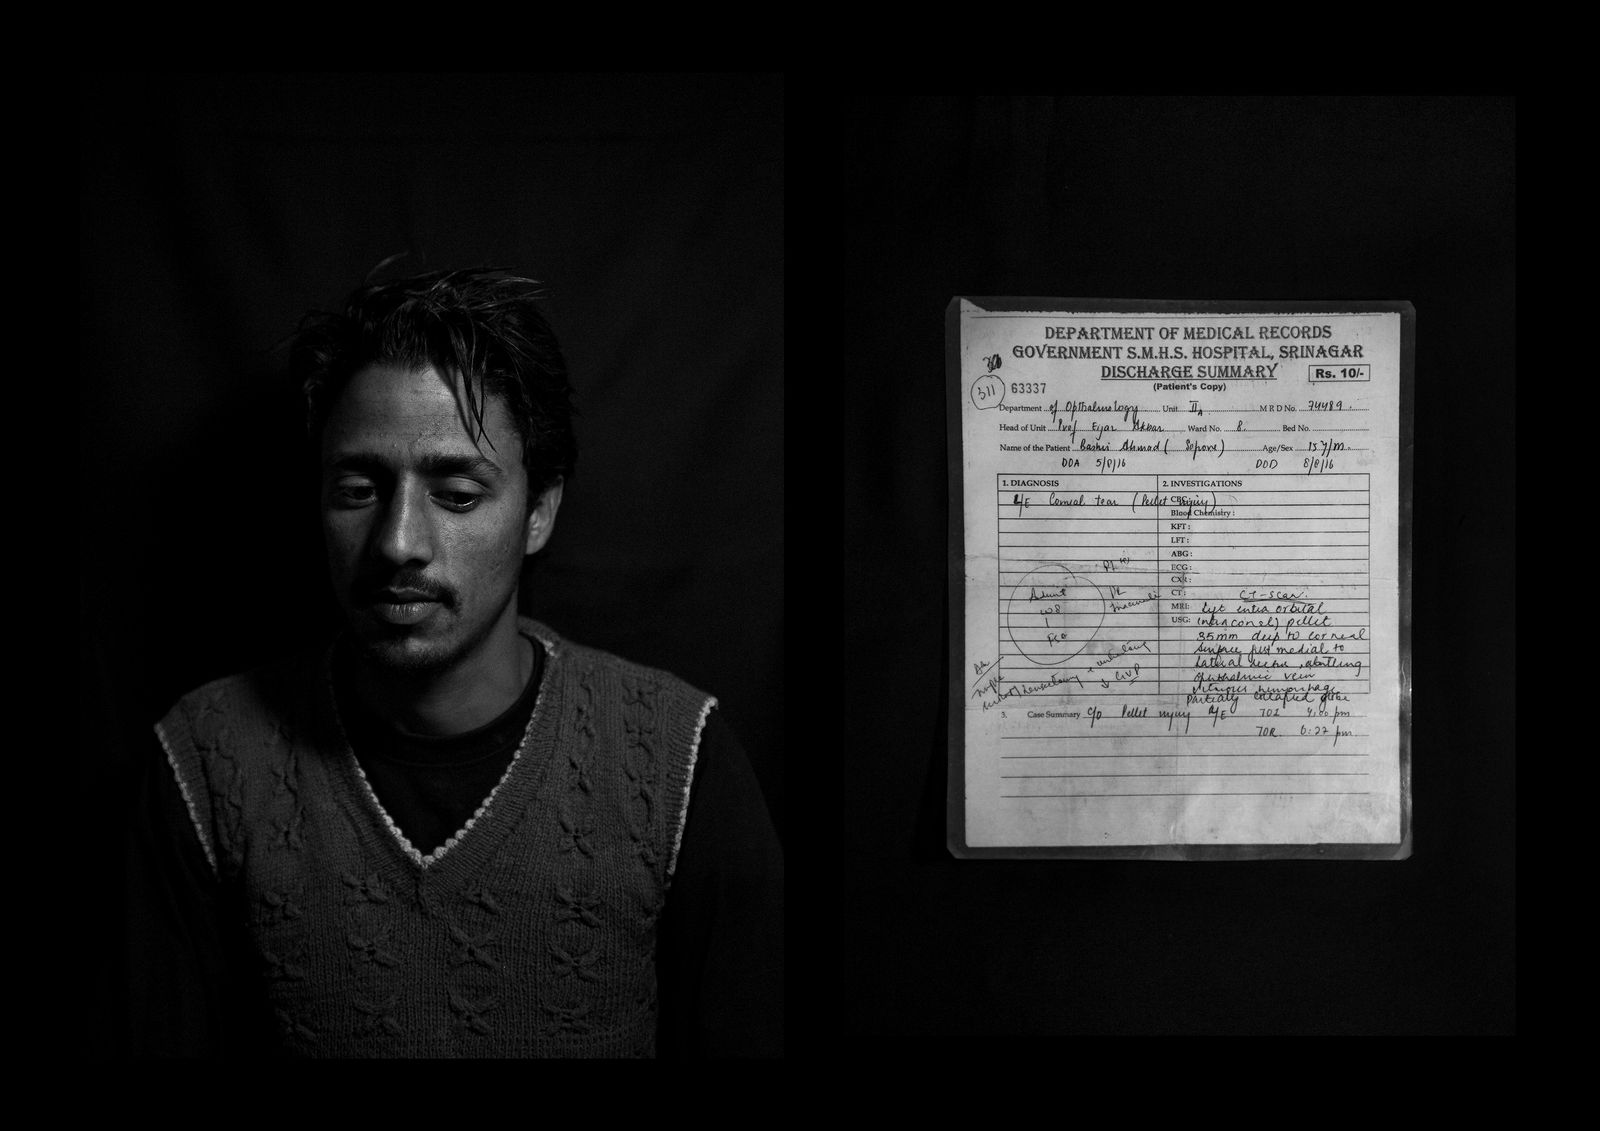 DEPARTMENT OF MEDICAL RECORDS
GOVERNMENT S.M.H.S. HOSPITAL, SRINAGAR
DISCHARGE SUMMARY
Rs. 10/-
(Patient's Copy)
311 63337
Department of Opthalmology Unit II A M R D No. 74489
Head of Unit Prof Ejaz Akbar Ward No. 8 Bed No.
Name of the Patient Bashir Ahmad ( Sopore ) Age/Sex 15 y/m
DOA 5/8/16 DOD 8/8/16
1. DIAGNOSIS 2. INVESTIGATIONS
L/E Corneal tear (Pellet injury)
CBC:
Blood Chemistry :
KFT :
LFT :
ABG :
ECG :
CXR :
CT : CT-Scan.
MRI: Left intra orbital
USG: (intraconal) pellet
35mm deep to corneal
surface just medial to
lateral rectus, abutting
ophthalmic vein
vitreous hemorrhage
Partially collapsed globe
Admit
W8
3. Case Summary c/o Pellet injury L/E TOI 4:00 pm
TOR 6:27 pm